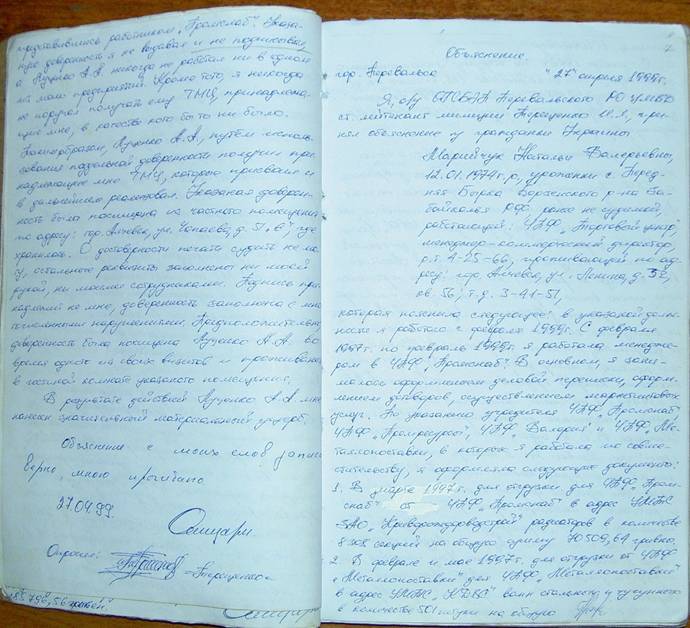 представившись работником „Промснаб". Указан-
ную доверенность я не выдавал и не подписывал,
а Луценко А.А. никогда не работал ни в одном
из моих предприятий. Кроме того, я никогда
не поручал получать ему ТМЦ, принадлежа-
щие мне, в качестве кого бы то ни было.
Таким образом, Луценко А.А., путём исполь-
зования поддельной доверенности получил при-
надлежащие мне ТМЦ, которые присвоил и
в дальнейшем реализовал. Указанная доверен-
ность была похищена из частного помещения
по адресу: гор. Алчевск, ул. Чапаева, д. где
хранилась. О достоверности печати судить не мо-
гу, остальные реквизиты заполнены не моей
рукой, не моими сотрудниками. Подпись при-
надлежит не мне, доверенность заполнена с мно-
гочисленными нарушениями. Предположительно
доверенность была похищена Луценко А.А. во
время одного из своих визитов и проживания
в гостиной комнате указанного помещения.
В результате действий Луценко А.А. мне
нанесен значительный материальный ущерб.
Объяснение с моих слов записано
верно, мною прочитано
27.04.99.
Опросил: Терещенко
Объяснение
гор. Перевальск "27" апреля 1999г.
Я, о/у Перевальского РО УМВД
ст. лейтенант милиции Терещенко принял
объяснение у гражданки Украины
Марийчук Натальи Валерьевны,
12.01.1974г.р, уроженки с Перед-
няя Бырка Борзинского р-на За-
байкалья РФ, ранее не судимой,
работающей: ЧПФ „Торговый центр",
менеджер-коммерческий директор,
р.т. 4-25-66, проживающей по ад-
ресу: гор. Алчевск, ул. Ленина, д.
кв. 56, т.д. 3-41-51,
которая пояснила следующее: в указанной долж-
ности я работаю с февраля 1999г. С февраля
1997г. по февраль 1999г. я работала менедже-
ром в ЧПФ „Промснаб". В основном, я зани-
малась оформлением деловой переписки, оформ-
лением договоров, осуществлением маркетинговых
услуг. По указанию учредителя ЧПФ „Промснаб"
ЧПФ „Промресурсы", ЧПФ „Валерия" и ЧПФ „Ме-
таллопоставки", в которых я работала по совме-
стительству, я оформляла следующие документы:
1. В марте 1997г. для отгрузки для ЧПФ „Пром-
снаб" от ЧПФ „Промснаб" в адрес УМТС
ЗАО „Криворожводстрой" радиаторов в количестве
секций на общую сумму 70509,64 гривны.
2. В феврале и мае 1997г. для отгрузки от ЧПФ
„Металлопоставки" для ЧПФ „Металлопоставки"
в адрес УМТС ванн стальных и чугунных
в количестве 501 штуки на общую